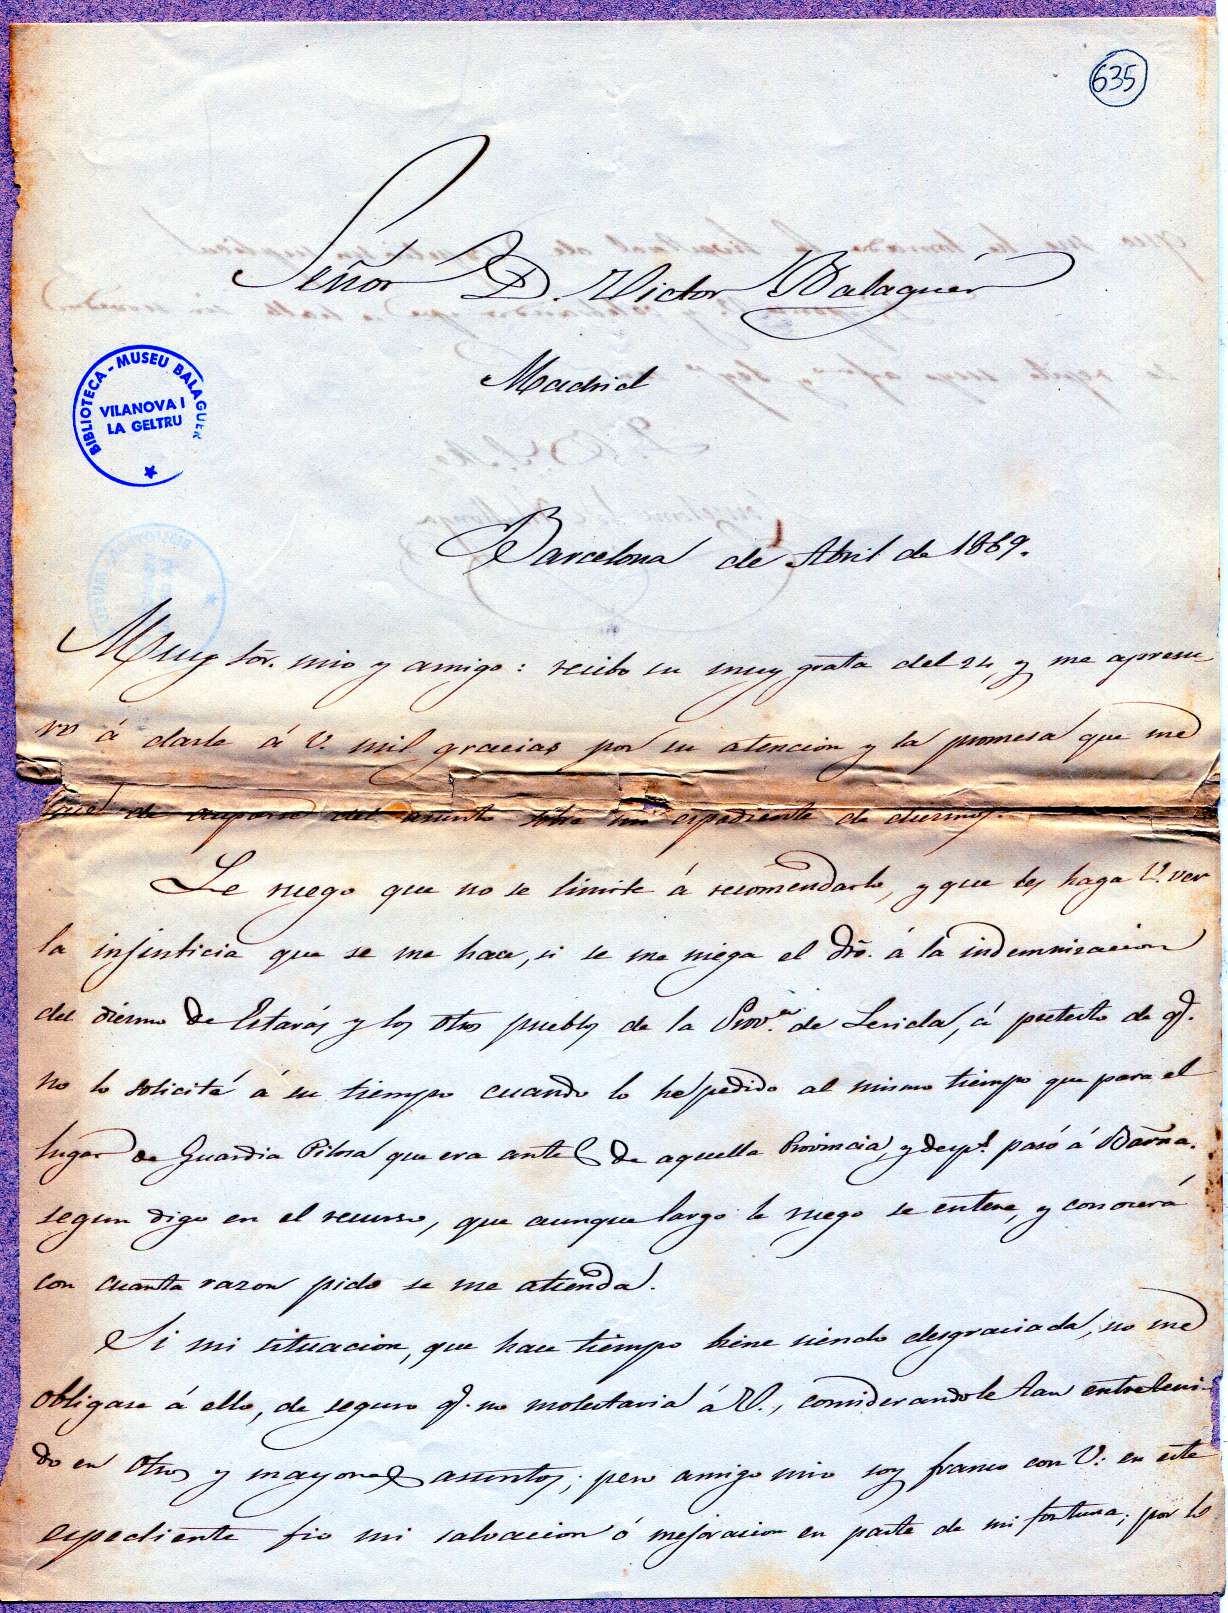 635
Señor D. Victor Balaguer
Madrid
BIBLIOTECA - MUSEU BALAGUER
VILANOVA I
LA GELTRU
Barcelona de Abril de 1869.
Muy Sor. mio y amigo: recibo su muy grata del 24, y me apresu
ro á darle á V. mil gracias por su atencion y la promesa que me
de ocuparse del asunto sobre mi espediente de diezmos.
Le ruego que no se limite á recomendarlo, y que les haga V. ver
la injusticia que se me hace, si se me niega el dro. á la indemnisacion
del diésmo de Estarás y los otros pueblos de la Prov.ª de Lerida, á pretesto de q.
no lo solicité á su tiempo cuando lo he pedido al mismo tiempo que para el
lugar de Guardia Pilosa que era antes de aquella Provincia, y desp.s pasó á Barna.
segun digo en el recurso, que aunque largo le ruego se entere, y conocerá
con cuanta razon pido se me atienda.
Si mi situacion, que hace tiempo biene siendo desgraciada, no me
obligase á ello, de seguro q. no molestaria á V., considerandole tan entreteni-
do en otros y mayores asuntos; pero amigo mio soy franco con V: en este
espediente fio mi salvacion ó mejoracion en parte de mi fortuna; por lo